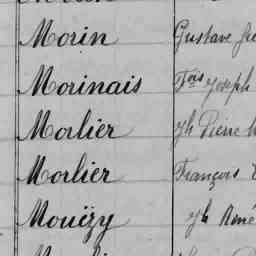 Morin Gustave
Morinais Fois Joseph
Morlier Jh Pierre
Morlier François
Mouëzy Jh René